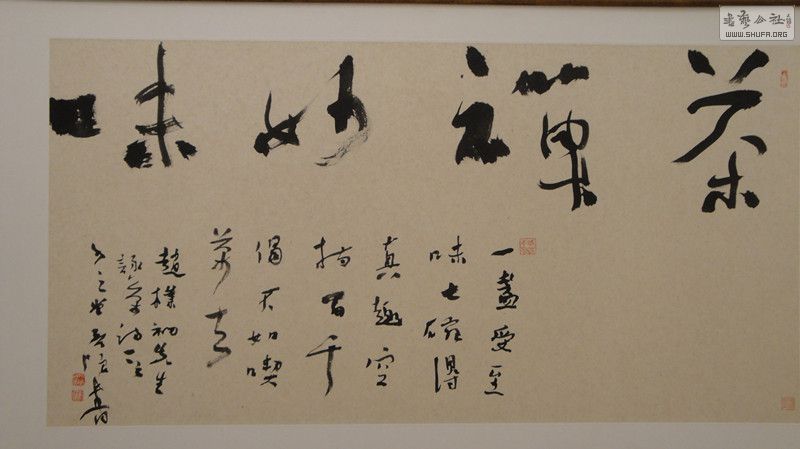 書藝公社
WWW.SHUFA.ORG
茶禪妙味
一盞受至
味七碗得
真趣空
持百千
偈不如喫
茶去
趙樸初先生
詠茶詩一首